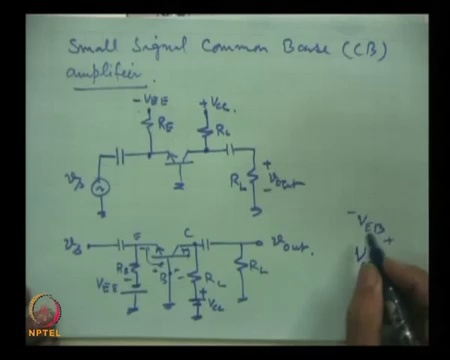 Small Signal Common Base (CB)
amplifier.
-VEE +VCC
RE RL
vs RL + vout -
vs E C vout
RB B RL RL
VEE VCC
-VEB +
NPTEL